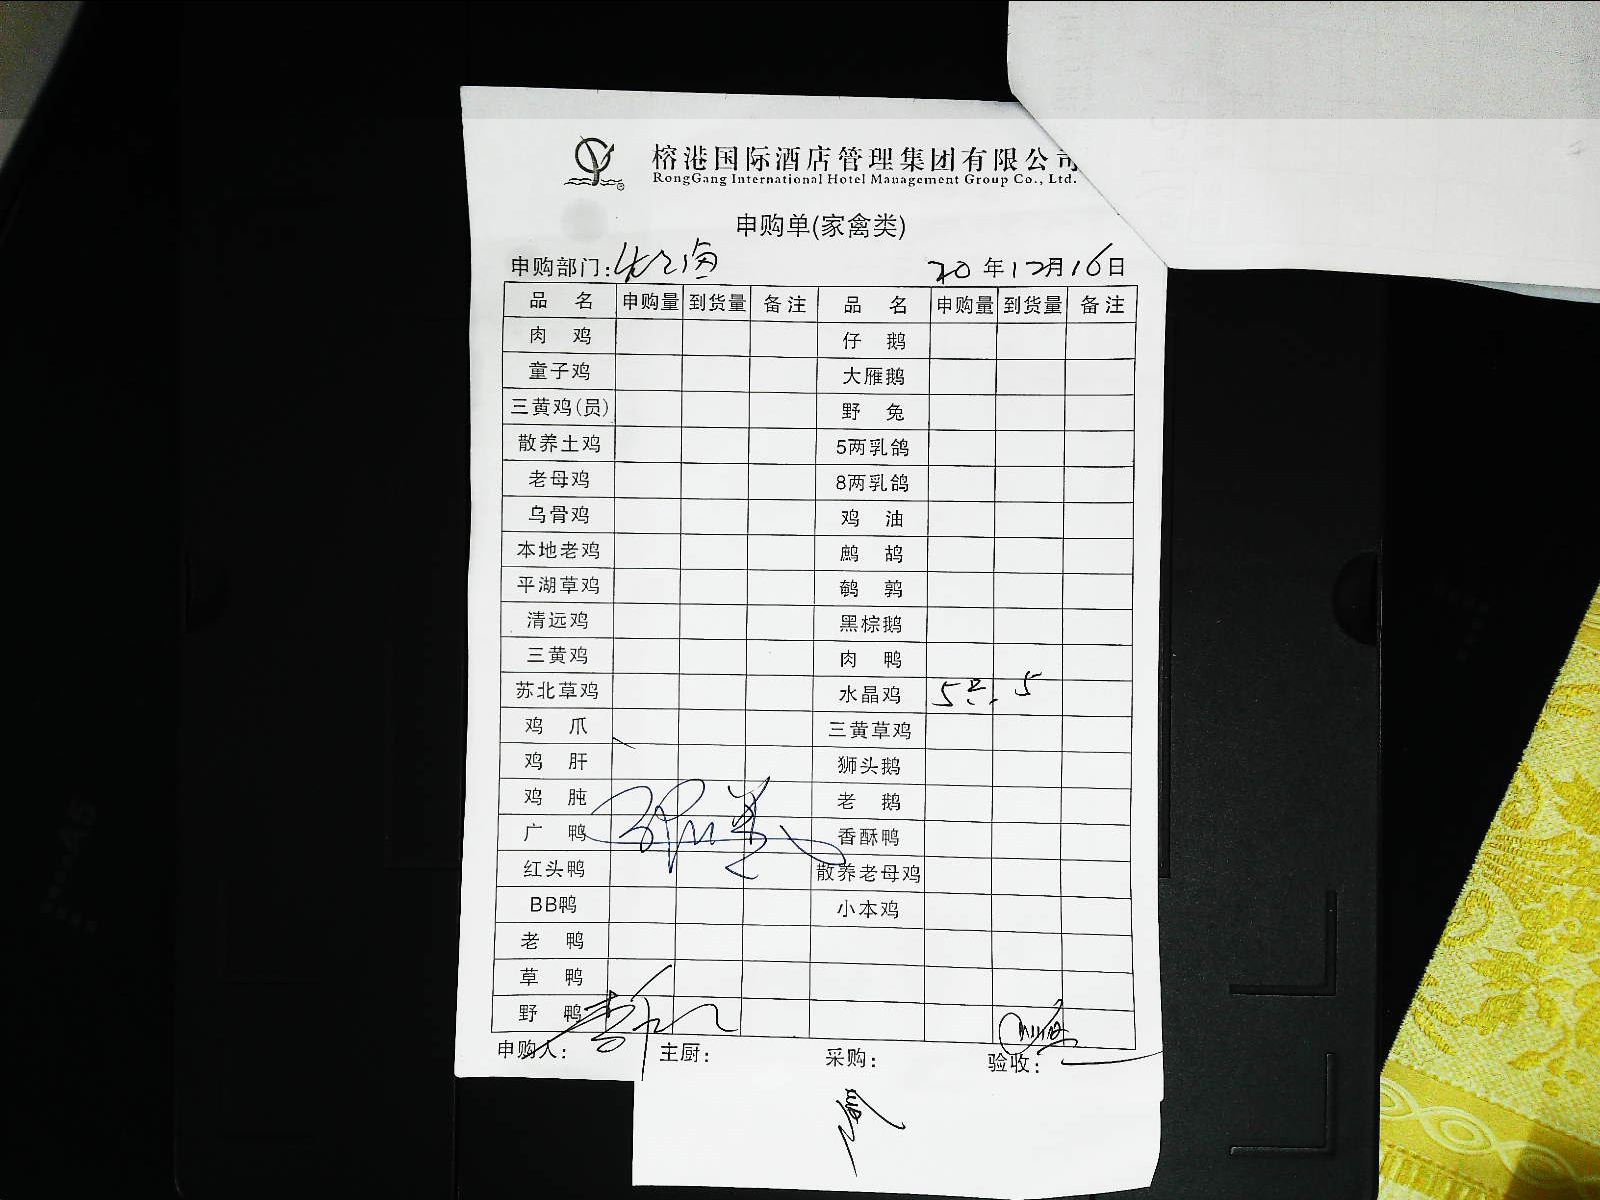 榕港国际酒店管理集团有限公司
RongGang International Hotel Management Group Co., Ltd.
申购单(家禽类)
申购部门: 20年12月16日
品名 申购量 到货量 备注 品名 申购量 到货量 备注
肉鸡 仔鹅
童子鸡 大雁鹅
三黄鸡(员) 野兔
散养土鸡 5两乳鸽
老母鸡 8两乳鸽
乌骨鸡 鸡油
本地老鸡 鹧鸪
平湖草鸡 鹌鹑
清远鸡 黑棕鹅
三黄鸡 肉鸭
苏北草鸡 水晶鸡 5只 5
鸡爪 三黄草鸡
鸡肝 狮头鹅
鸡肫 老鹅
广鸭 香酥鸭
红头鸭 散养老母鸡
BB鸭 小本鸡
老鸭
草鸭
野鸭
申购人: 主厨: 采购: 验收: